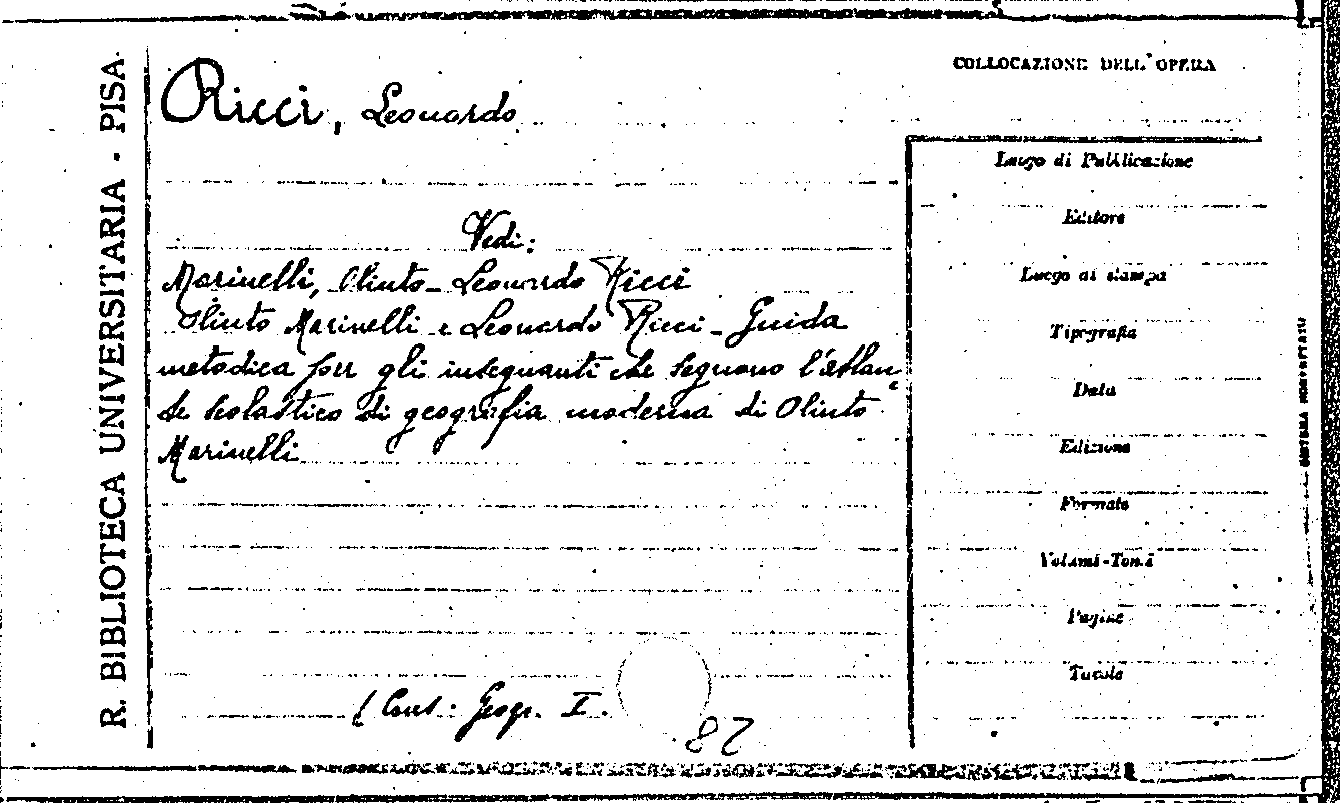 R. BIBLIOTECA UNIVERSITARIA - PISA
Ricci, Leonardo
Vedi:
Marinelli, Olinto - Leonardo Ricci
Olinto Marinelli e Leonardo Ricci - Guida
metodica per gli insegnanti che seguono l'atlan-
te scolastico di geografia moderna di Olinto
Marinelli
( Cons: Geogr. I.
28
COLLOCAZIONE DELL'OPERA
Luogo di Pubblicazione
Editore
Luogo di stampa
Tipografia
Data
Edizione
Formato
Volumi-Tomi
Pagine
Tavole